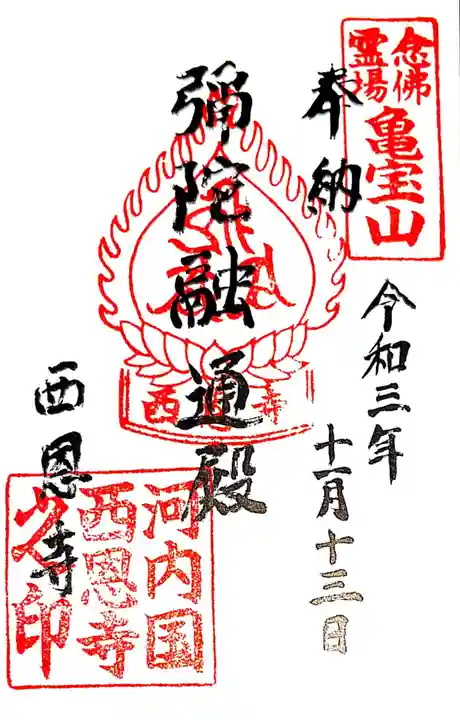 念佛
霊場
亀宝山
奉納
令和三年
十一月十三日
弥陀融通殿
西恩寺
西恩寺
河内国
西恩寺
之印